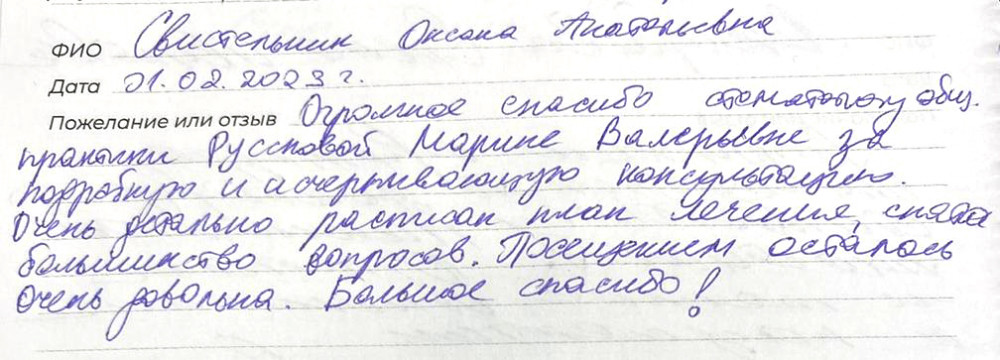 ФИО Свистельник Оксана Анатольевна
Дата 01.02.2023 г.
Пожелание или отзыв Огромное спасибо стоматологу общ.
практики Руссковой Марине Валерьевне за
подробную и исчерпывающую консультацию.
Очень детально расписан план лечения, сняла
большинство вопросов. Посещением осталась
очень довольна. Большое спасибо!